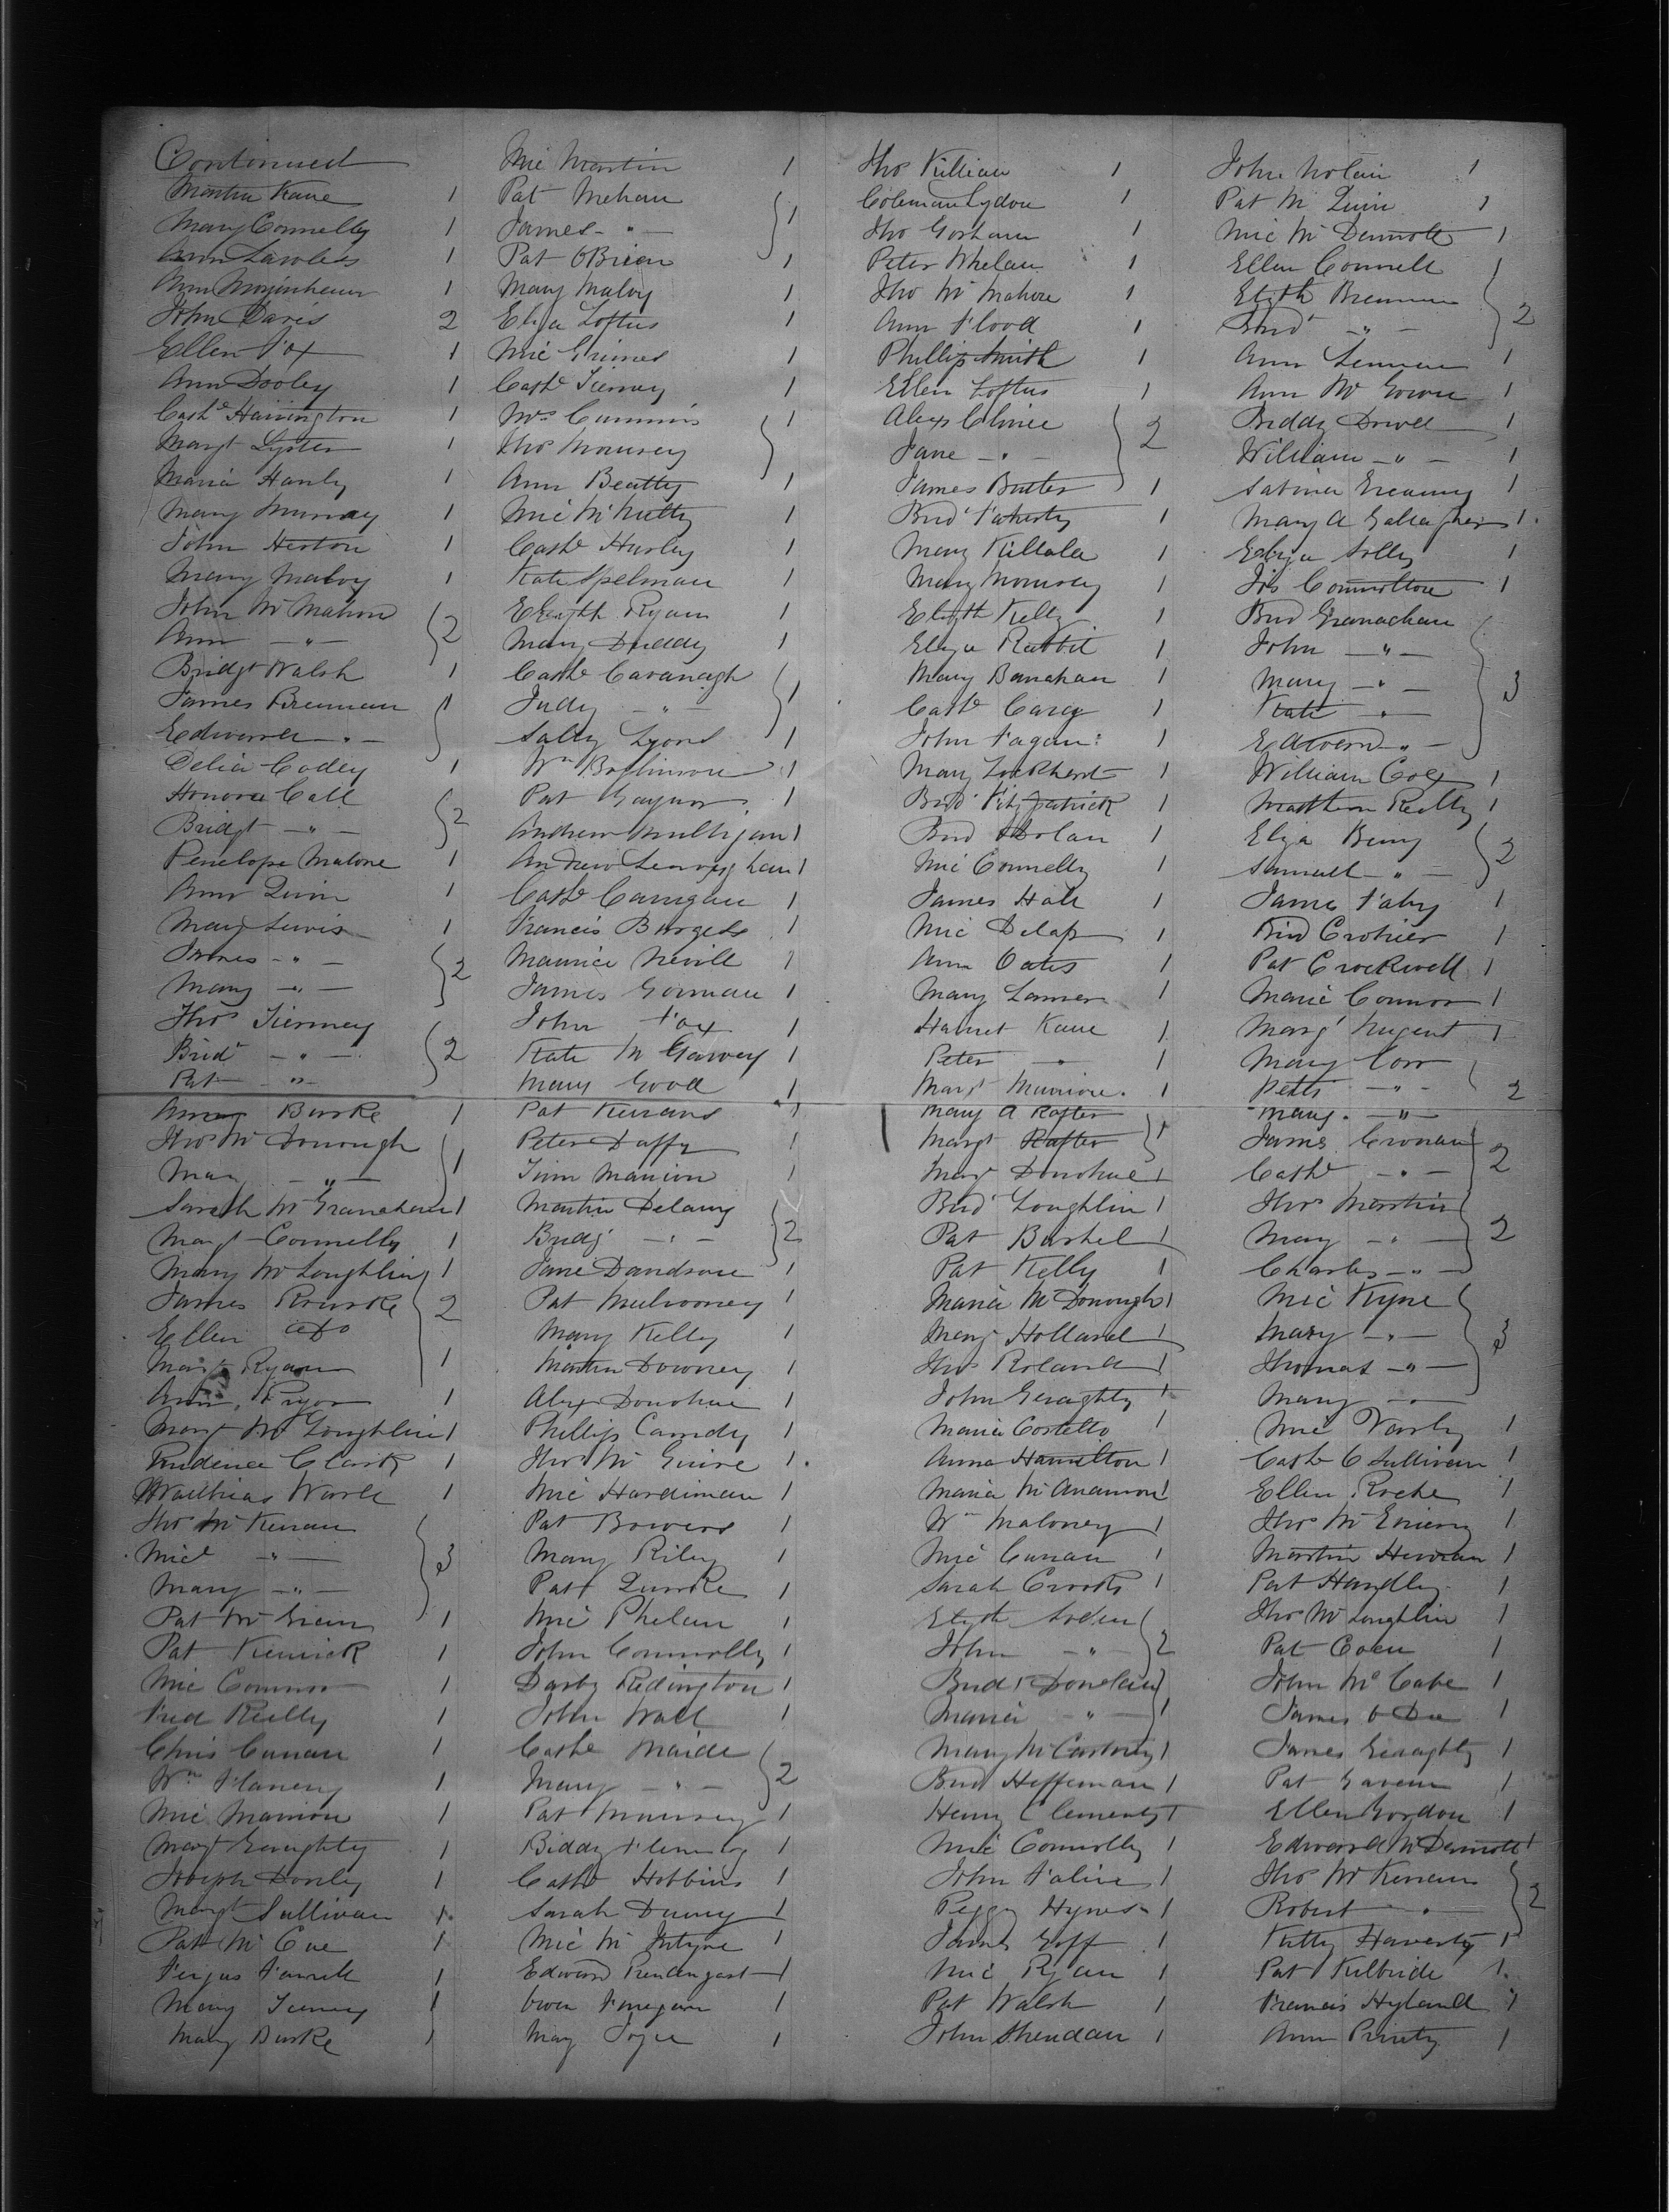 Continued
Martin Kane 1
Mary Connelly 1
Ann Lawless 1
Ann 1
John Davis 2
Ellen Fox 1
Ann Dooley 1
Cathe Harrington 1
Margt Lyster 1
Maria Hanly 1
Mary Murray 1
John Heston 1
Mary Maloy 1
John McMahon
Ann -"- 2
Bridgt Walsh 1
James Brennan 1
Edward "-
Delia Codey 1
Honora Call
Bridgt -"- 2
Penelope Malone 1
Ann Quinn 1
Mary Lewis 1
-"-
Mary -"- 2
Thos Tierney
Brid -"- 2
Pat -"-
Burke 1
Thos McDonough
Mary -"- 1
Sarah McGranahan 1
Margt Connelly 1
Mary McLoughlin 1
James Rourke 2
Ellen do
Margt Ryan 1
Ann Pryor 1
Margt McLoughlin 1
Prudence Clark 1
Matthias Ward 1
Thos McKenan
Micl -"- 3
Mary -"-
Pat 1
Pat Kenrick 1
Mic Connor 1
Fred Reilly 1
Chris Cunan 1
Wm Flanery 1
Mic Mannion 1
Margt Geraghty 1
Joseph Donley 1
Margt Sullivan 1
Patt McCue 1
Fergus Farrell 1
Mary Tierney 1
Mary Burke 1
Mic Martin 1
Pat Mehan
James -"- 1
Pat OBrien 1
Mary Maloy 1
Eliza Loftus 1
Mic Grimes 1
Cathe Tierney 1
Mrs Cummins 1
Thos Mounsey
Ann Beatty 1
Mic McNulty 1
Cathe Hurley 1
Kate Spelman 1
Elizth Ryan 1
Mary Duddy 1
Cathe Cavanagh
Judy -"- 1
Sally Lyons 1
Wm 1
Pat Gaynor 1
Andrew Mulligan 1
Andrew 1
Cathe Carrigan 1
Francis Burgess 1
Maurice Nevill 1
James Gorman 1
John Fox 1
Kate McGarvey 1
Mary Good 1
Pat Kerrans 1
Peter Duffy 1
Tim Mannion 1
Martin Delany
Bridg -"- 2
Jane Davidson 1
Pat Mulrooney 1
Mary Kelly 1
Martin Downey 1
Alex Donohue 1
Phillip Camdy 1
Thos McGuire 1
Mic Hardiman 1
Pat Bowers 1
Mary Riley 1
Patt Quirke 1
Mic Phelan 1
John Connolly 1
Darby Redington 1
John Wall 1
Cathe Maide
Mary -"- 2
Pat Mounsey 1
Biddy Fleming 1
Cathe Hobbins 1
Sarah Dunny 1
Mic McIntyre 1
Edward Prendergast 1
Owen Finegan 1
May Joyce 1
Thos Killian 1
Coleman Lydon 1
Tho Gorham 1
Peter Whelan 1
Tho McMahon 1
Ann Flood 1
Phillip Smith 1
Ellen Loftus 1
Alex Clinee
Jane -"- 2
James Butler 1
Brid Faherty 1
Mary Killala 1
Mary Mounsey 1
Elizth Kelly 1
Eliza Rabbit 1
Mary Banahan 1
Cathe Carey 1
John Fagan 1
Mary Lockhart 1
Brid Fitzpatrick 1
Brid Nolan 1
Mic Connelly 1
James Hall 1
Mic Delap 1
Ann Oates 1
Mary 1
Harriet Kane 1
Peter " 1
Margt 1
Mary A Rafter
Margt Rafter 1
Mary Donohue 1
Brid Loughlin 1
Pat Burkel 1
Pat Kelly 1
Maria McDonough 1
Mary Holland 1
Thos Roland 1
John Geraghty 1
Maria Costello 1
Anna Hamilton 1
Maria McAnamon 1
Wm Maloney 1
Mic Cunan 1
Sarah Crooks 1
Elizth Soden
John -"- 2
Brid Donelan
Maria -"- 1
Mary McCartney 1
Brid Heffernan 1
Henry Clements 1
Mic Connolly 1
John Faline 1
Peggy Hynes 1
James Goff 1
Mic Ryan 1
Pat Walsh 1
John Sheridan 1
John Nolan 1
Pat McQuin 1
Mic McDermott 1
Ellen Connell
Elizth Brennan
Brid -"- 2
Ann Lennan 1
Ann McGowan 1
Biddy Dowd 1
William -"- 1
Sabina Greaney 1
Mary A Gallagher 1
Eliza Solly 1
Jos Connolton 1
Brid Granaghan
John -"-
Mary -"- 3
Kate "
Edward "-
William Cox 1
Matthew Reilly 1
Eliza Berry
Samuel -"- 2
James Fahy 1
Brid Crohier 1
Pat Crockwell 1
Marie Connor 1
Margt Nugent 1
Mary Corr
Peter -"- 2
Mary -"-
James Cronan
Cathe -"- 2
Thos Martin
Mary -"- 2
Charles -"-
Mic Kyne
Mary -"- 3
Thomas -"-
Mary -"-
Mic Varly 1
Cathe OSullivan 1
Ellen Roche 1
Thos 1
Martin Heviran 1
Pat Handley 1
Thos McLoughlin 1
Pat Coen 1
John McCabe 1
James ODee 1
James Geraghty 1
Pat Gaven 1
Ellen Gordon 1
Edward McDermott 1
Thos McKenan
Robert " 2
Kitty Haverty 1
Pat Kilbride 1
Francis Hyland 1
Ann Printy 1